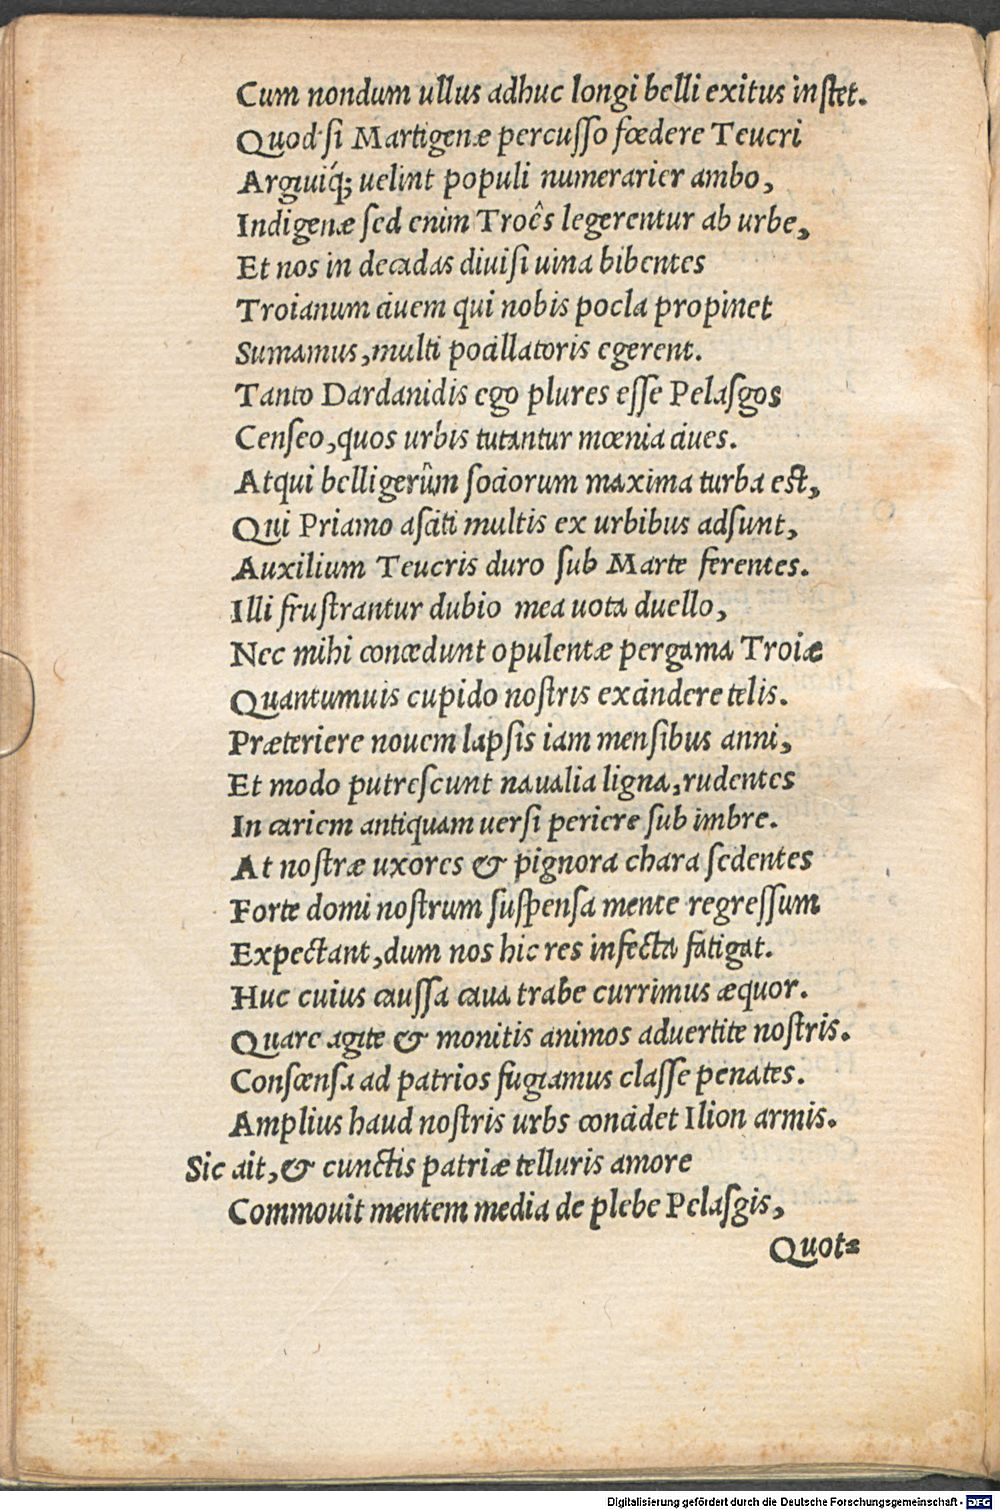 Cum nondum ullus adhuc longi belli exitus instet.
Quod si Martigenæ percusso fœdere Teucri
Argiuiq́; uelint populi numerarier ambo,
Indigenæ sed enim Troês legerentur ab urbe,
Et nos in decadas diuisi uina bibentes
Troianum ciuem qui nobis pocla propinet
Sumamus, multi pocillatoris egerent.
Tanto Dardanidis ego plures esse Pelasgos
Censeo, quos urbis tutantur mœnia ciues.
Atqui belligerûm sociorum maxima turba est,
Qui Priamo asciti multis ex urbibus adsunt,
Auxilium Teucris duro sub Marte ferentes.
Illi frustrantur dubio mea uota duello,
Nec mihi concedunt opulentæ pergama Troiæ
Quantumuis cupido nostris excindere telis.
Præteriere nouem lapsis iam mensibus anni,
Et modo putrescunt naualia ligna, rudentes
In cariem antiquam uersi periere sub imbre.
At nostræ uxores & pignora chara sedentes
Forte domi nostrum suspensa mente regressum
Expectant, dum nos hic res infecta fatigat.
Huc cuius caussa caua trabe currimus æquor.
Quare agite & monitis animos aduertite nostris.
Conscensa ad patrios fugiamus classe penates.
Amplius haud nostris urbs concidet Ilion armis.
Sic ait, & cunctis patriæ telluris amore
Commouit mentem media de plebe Pelasgis,
Quot=
Digitalisierung gefördert durch die Deutsche Forschungsgemeinschaft - DFG